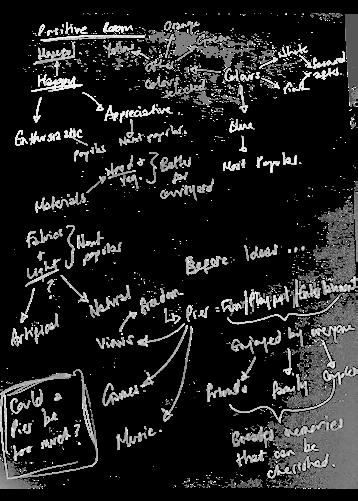 Positive Room
Neutral
Yellow
Orange
Green
Other
Colours
selected
Happy
Colours
White
Pink
Second
Enthusiastic
Appreciative
Most popular.
Popular
Blue
Most Popular.
Materials
Wood +
veg.
Better
for
courtyard
Fabrics
+
Light
Most
popular
?
Artificial
Natural
Before Ideas ...
Freedom
Views
Pier = Fun/Playful/Entertainment
Enjoyed by everyone
Friends
family
Couples
Games
Music.
Could a
Pier be
too much?
memories
that can be
cherished.